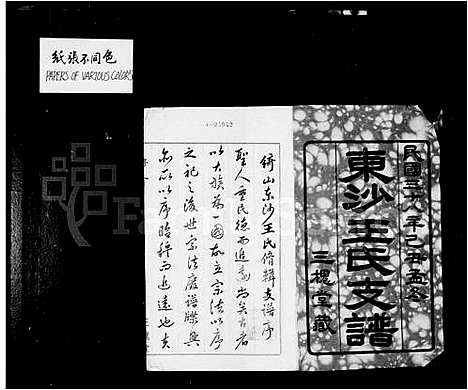 紙張不同色
PAPERS OF VARIOUS COLORS
民國三八年己丑孟冬
東沙王氏支譜
三槐堂藏
錡山东沙王氏脩輯支譜序
聖人重民德而追遠尚矣古者
以大族為一國故立宗法以序
之祀之後世宗法廢譜牒興
亦所以序昭穆而追遠也夫